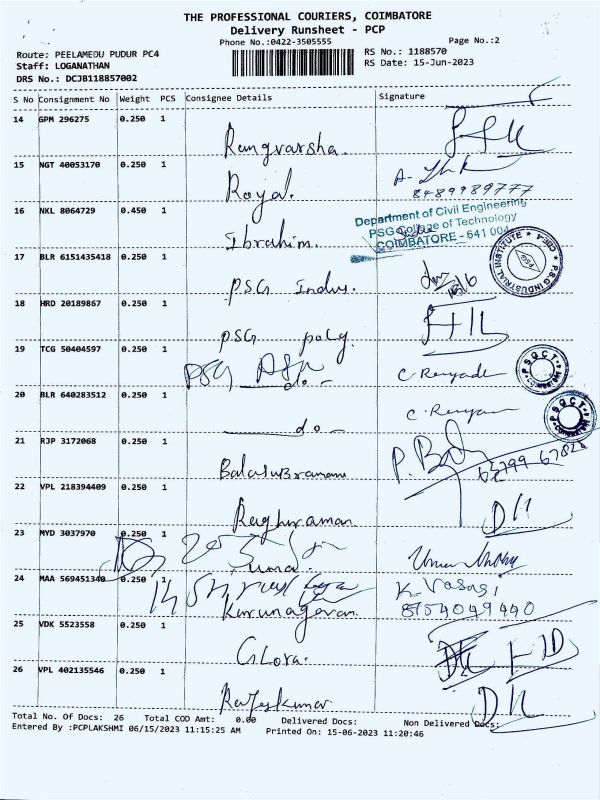 THE PROFESSIONAL COURIERS, COIMBATORE
Delivery Runsheet - PCP
Phone No.:0422-3505555 Page No.:2
Route: PEELAMEDU PUDUR PC4 RS No.: 1188570
Staff: LOGANATHAN RS Date: 15-Jun-2023
DRS No.: DCJB118857002
S No Consignment No Weight PCS Consignee Details Signature
14 GPM 296275 0.250 1
Rangvarsha.
15 NGT 40053170 0.250 1
Royal. 8489989777
16 NKL 8064729 0.450 1
Department of Civil Engineering
PSG College of Technology
COIMBATORE - 641 004
Ibrahim.
17 BLR 6151435418 0.250 1
P.S.G INDUSTRIAL INSTITUTE
PSG Indus. 15/6
18 HRD 20189867 0.250 1
PSG poly.
19 TCG 50404597 0.250 1
PSG
do - C. Renyade
PSGCT
20 BLR 640283512 0.250 1
do - C. Renyam
PSGCT
21 RJP 3172068 0.250 1
BalasuBramani P. Body
22 VPL 218394409 0.250 1
Raghuraman
23 MYD 3037970 0.250 1
Suma.
24 MAA 569451340 0.250 1
K. Vasasi
Karunagaran. 8754049440
25 VDK 5523558 0.250 1
Glora.
26 VPL 402135546 0.250 1
Rajeskumar.
Total No. Of Docs: 26 Total COD Amt: 0.00 Delivered Docs: Non Delivered Docs:
Entered By :PCPLAKSHMI 06/15/2023 11:15:25 AM Printed On: 15-06-2023 11:20:46